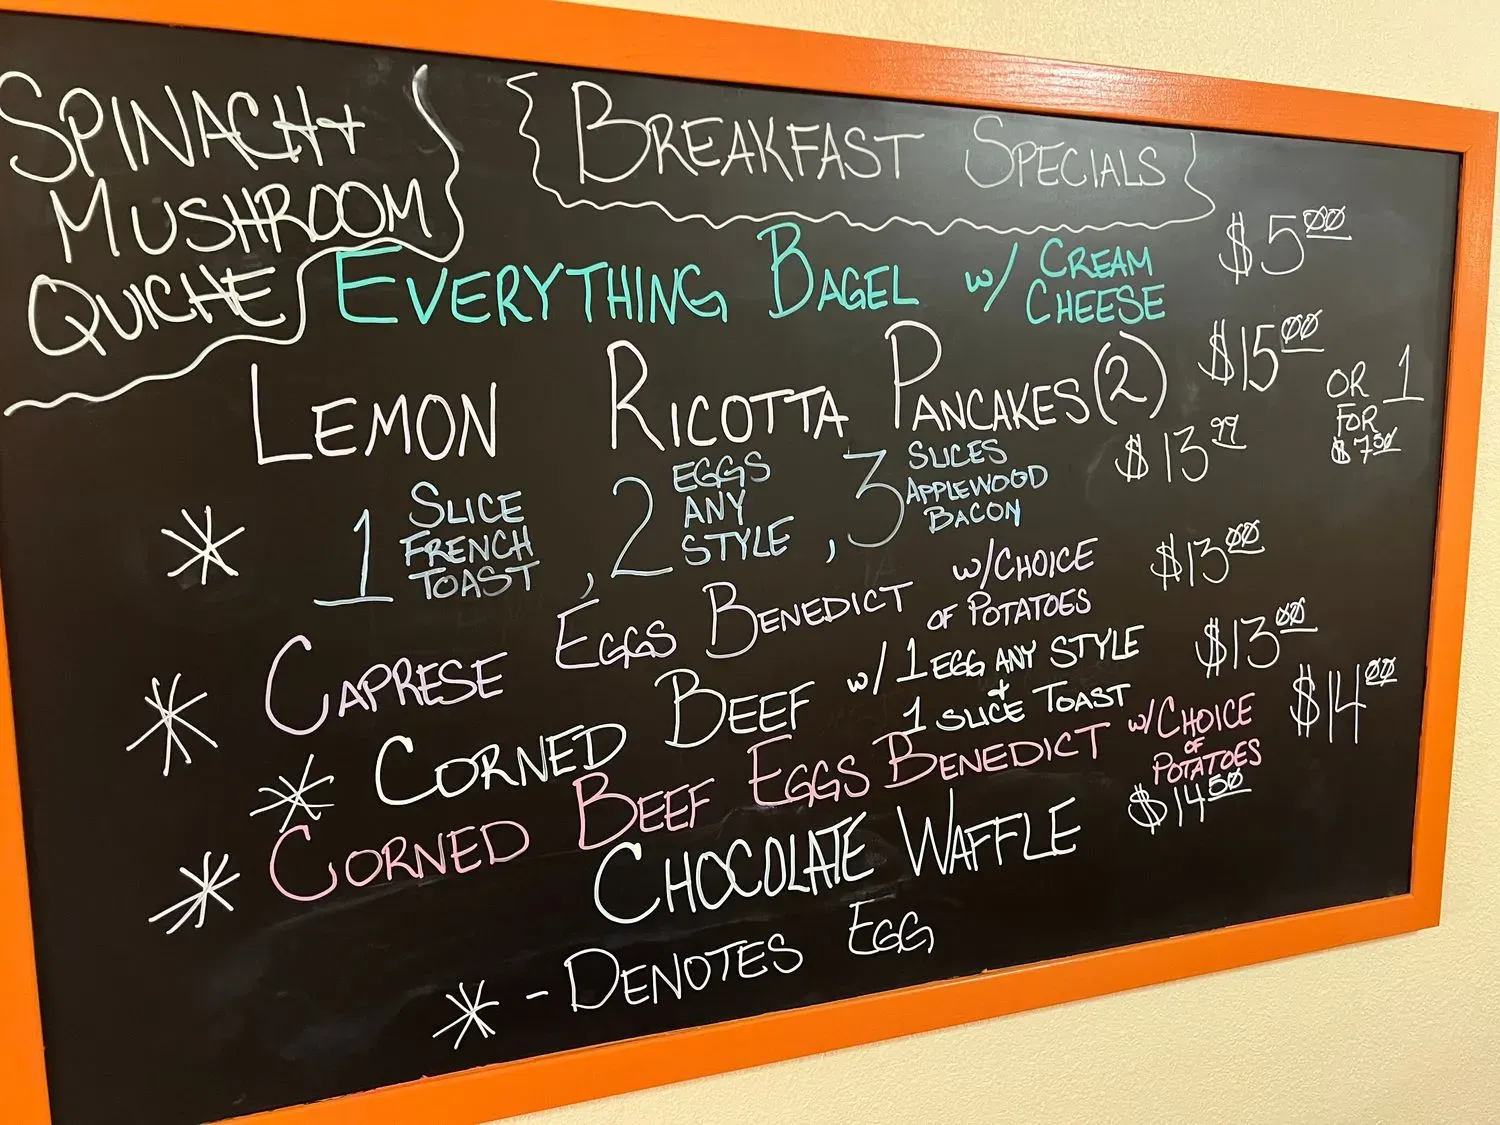 SPINACH +
MUSHROOM
QUICHE
BREAKFAST SPECIALS
EVERYTHING BAGEL w/ CREAM CHEESE $5.00
LEMON RICOTTA PANCAKES (2) $15.00 OR 1 FOR $7.50
* 1 SLICE FRENCH TOAST, 2 EGGS ANY STYLE, 3 SLICES APPLEWOOD BACON $13.99
* CAPRESE EGGS BENEDICT w/CHOICE OF POTATOES $13.00
* CORNED BEEF w/ 1 EGG ANY STYLE + 1 SLICE TOAST $13.00
* CORNED BEEF EGGS BENEDICT w/CHOICE OF POTATOES $14.00
CHOCOLATE WAFFLE $14.50
* - DENOTES EGG